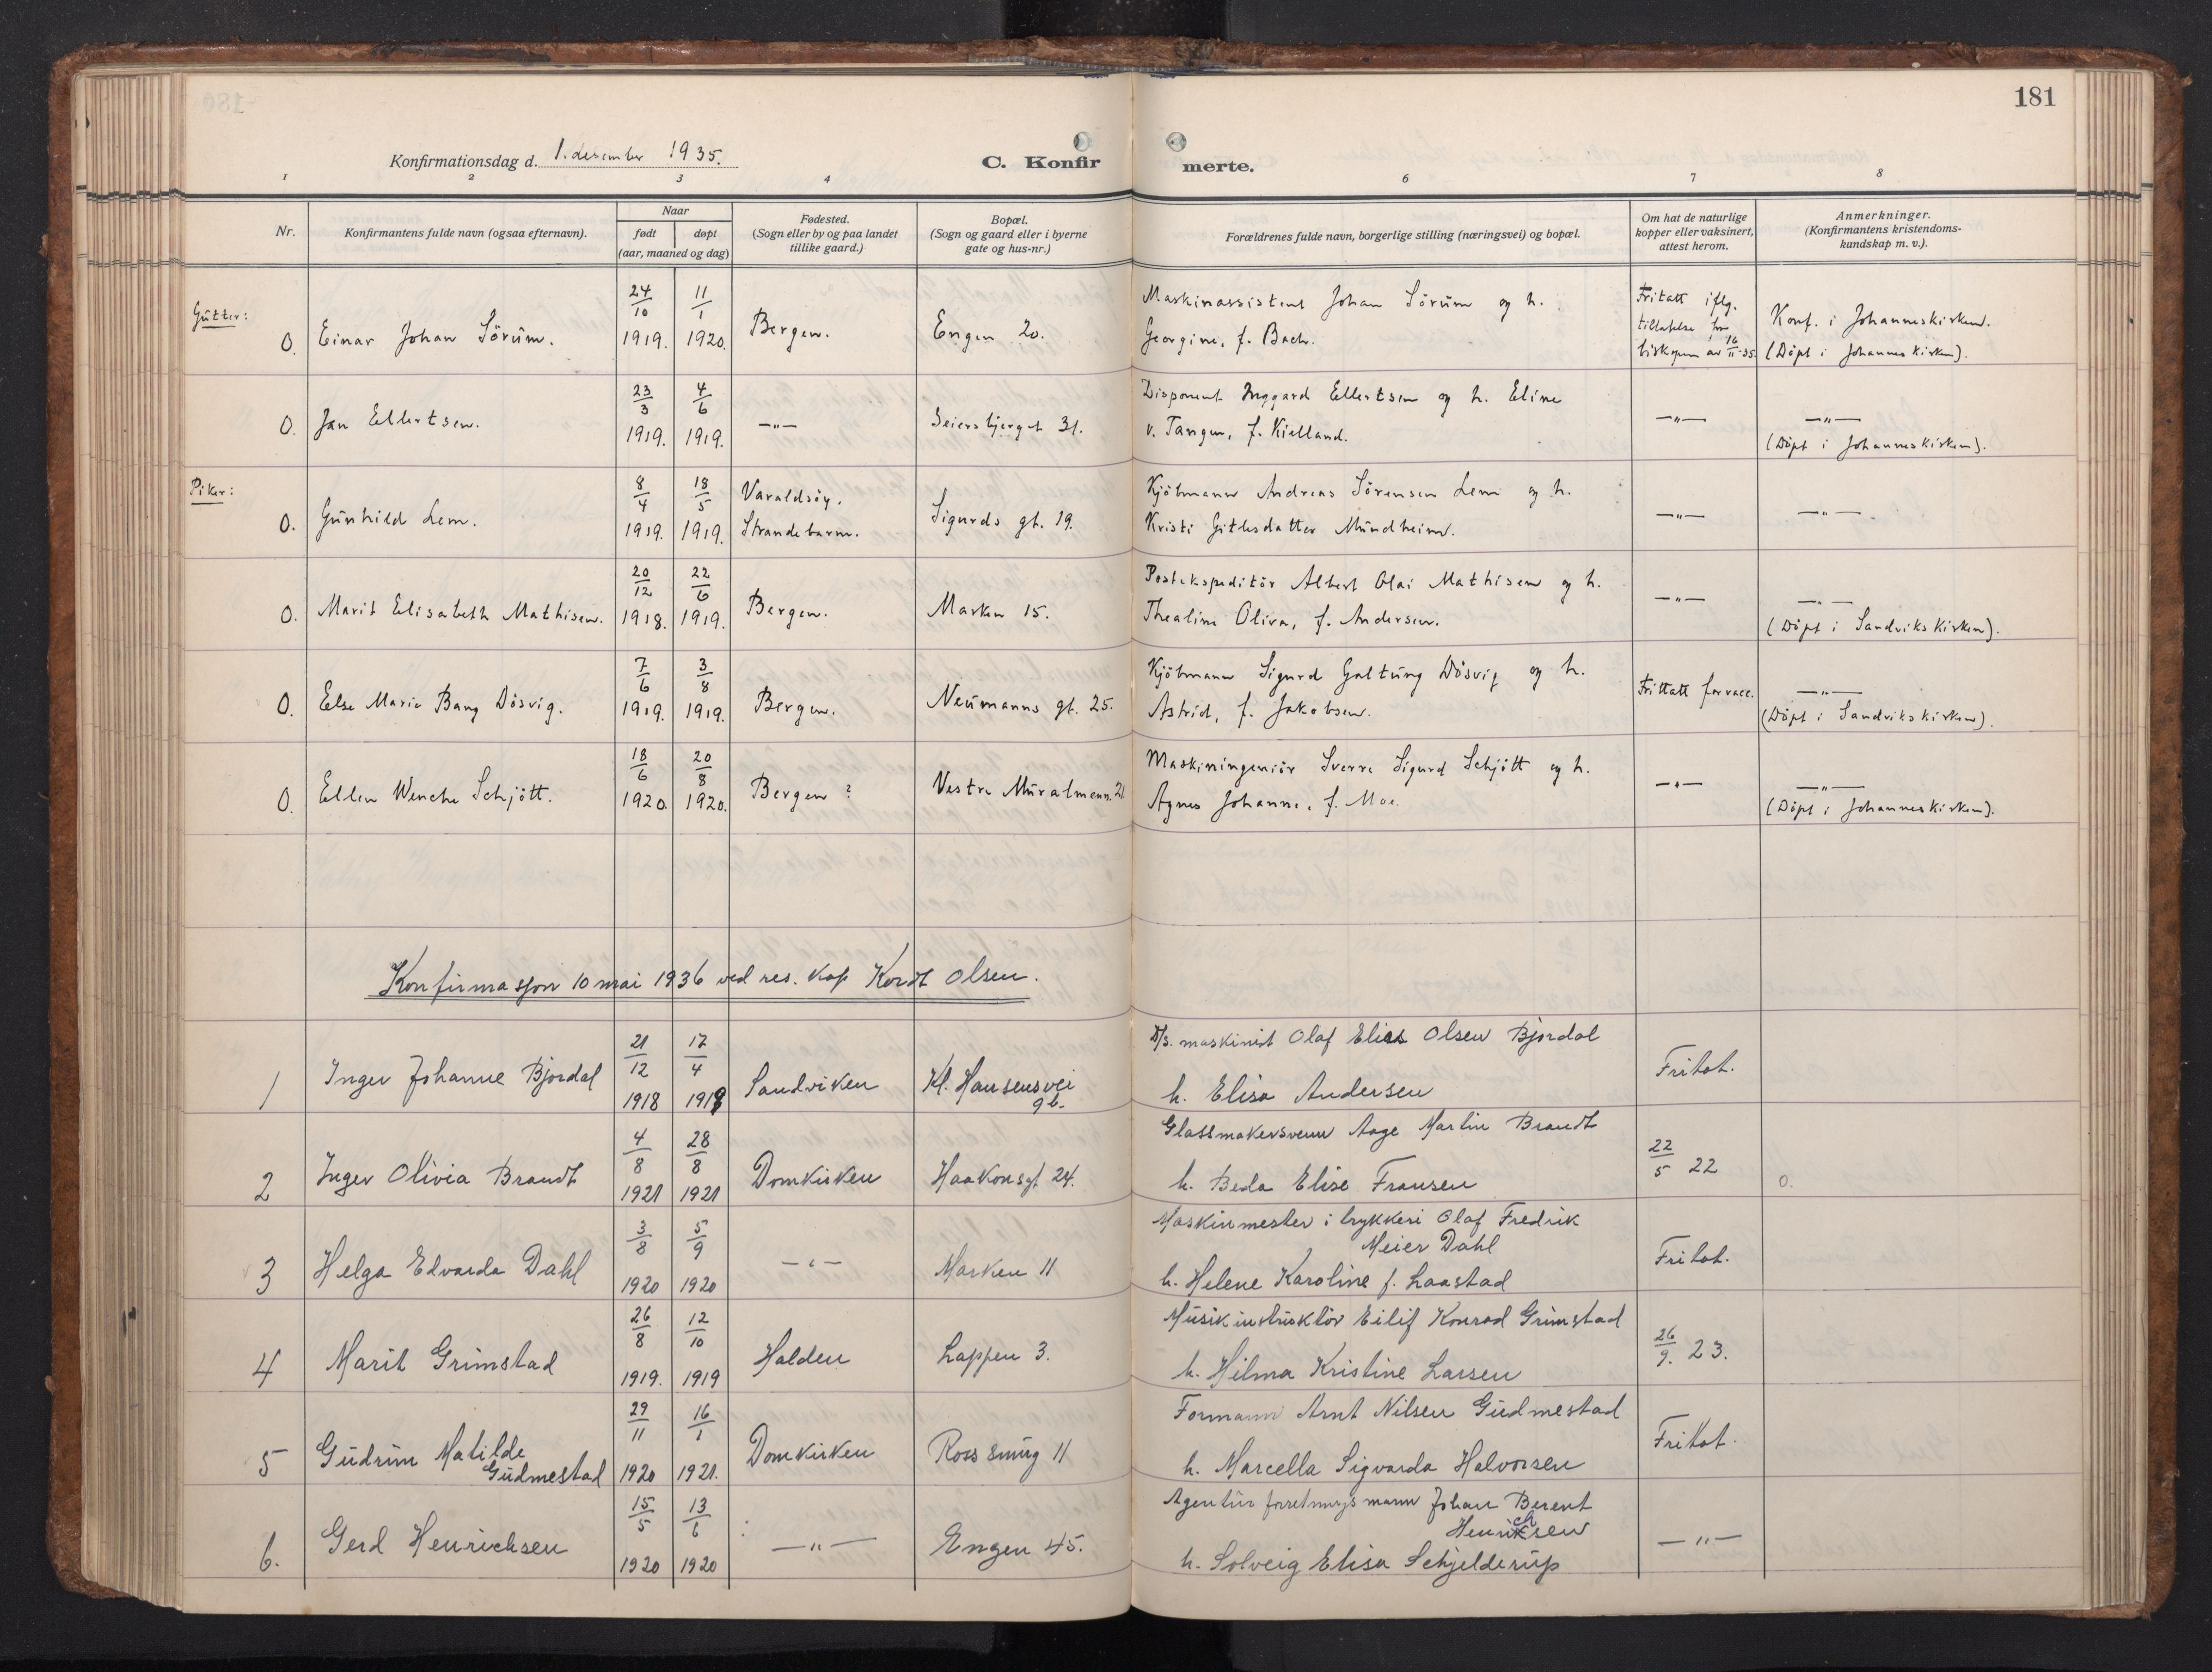 181
Konfirmationsdag d. 1. desember 1935.
C. Konfir merte.
1 2 3 4 6 7 8
Nr.
Konfirmantens fulde navn (ogsaa efternavn).
Naar
født døpt
(aar, maaned og dag)
Fødested.
(Sogn eller by og paa landet
tillike gaard.)
Bopæl.
(Sogn og gaard eller i byerne
gate og hus-nr.)
Forældrenes fulde navn, borgerlige stilling (næringsvei) og bopæl.
Om hat de naturlige
kopper eller vaksinert,
attest herom.
Anmerkninger.
(Konfirmantens kristendoms-
kundskap m. v.).
Gutter:
0. Einar Johan Sörum.
24/10 1919. 11/1 1920.
Bergen.
Engen 20.
Maskinassistent Johan Sörum og h.
Georgine, f. Bach.
Fritatt iflg.
tillatelse fra
biskopen av 16/11-35
Konf. i Johanneskirken.
(Döpt i Johanneskirken).
0. Jan Ellertsen.
23/3 1919. 4/6 1919.
—"—
Seiersbjerget 31.
Disponent Inggard Ellertsen og h. Eline
v. Tangen, f. Kielland.
—"—
—"—
(Döpt i Johanneskirken).
Piker:
0. Gunhild Lem.
8/4 1919. 18/5 1919.
Varaldsöy.
Strandebarm.
Sigurds gt. 19.
Kjöbmann Andreas Sörensen Lem og h.
Kristi Gitlesdatter Mundheim.
—"—
—"—
0. Marit Elisabeth Mathisen.
20/12 1918. 22/6 1919.
Bergen.
Marken 15.
Postekspeditör Albert Olai Mathisen og h.
Thealine Oliva, f. Andersen.
—"—
—"—
(Döpt i Sandvikskirken).
0. Else Marie Bang Dösvig.
7/6 1919. 3/8 1919.
Bergen.
Neumanns gt. 25.
Kjöbmann Sigurd Galtung Dösvig og h.
Astrid, f. Jakobsen.
Frittatt for vacc.
—"—
(Döpt i Sandvikskirken).
0. Ellen Wenche Schjött.
18/6 1920. 20/8 1920.
Bergen ?
Vestre Muralmenn. 21
Maskiningeniör Sverre Sigurd Schjött og h.
Agnes Johanne, f. Moe.
—"—
—"—
(Döpt i Johanneskirken).
Konfirmasjon 10 mai 1936 ved res. kap Kordt Olsen.
1 Inger Johanne Bjordal
21/12 1918 17/4 1919
Sandviken
Kl. Hansensvei
9b.
D/s. maskinist Olaf Elias Olsen Bjordal
h. Elisa Andersen
Fritat.
2 Inger Olivia Brandt
4/8 1921 28/8 1921
Domkirken
Haakonsgt. 24.
Glassmakersvenn Aage Martin Brandt
h. Beda Elise Fransen
22/5 22
0.
3 Helga Edvarda Dahl
3/8 1920 5/9 1920
—"—
Marken 11
Maskinmester i trykkeri Olaf Fredrik
Meier Dahl
h. Helene Karoline f. Laastad
Fritat.
4 Marit Grimstad
26/8 1919. 12/10 1919
Halden
Lappen 3.
Musikinstruktör Eilif Konrad Grimstad
h. Hilma Kristine Larsen
26/9. 23.
5 Gudrun Matilde
Gudmestad
29/11 1920 16/1 1921.
Domkirken
Rosesmug 11
Formann Arnt Nilsen Gudmestad
h. Marcella Sigvarda Halvorsen
Fritat.
6. Gerd Henrichsen
15/5 1920 13/6 1920
—"—
Engen 45.
Agentur forretningsmann Johan Berent
Henrichsen
h. Solveig Elisa Schjelderup
—"—